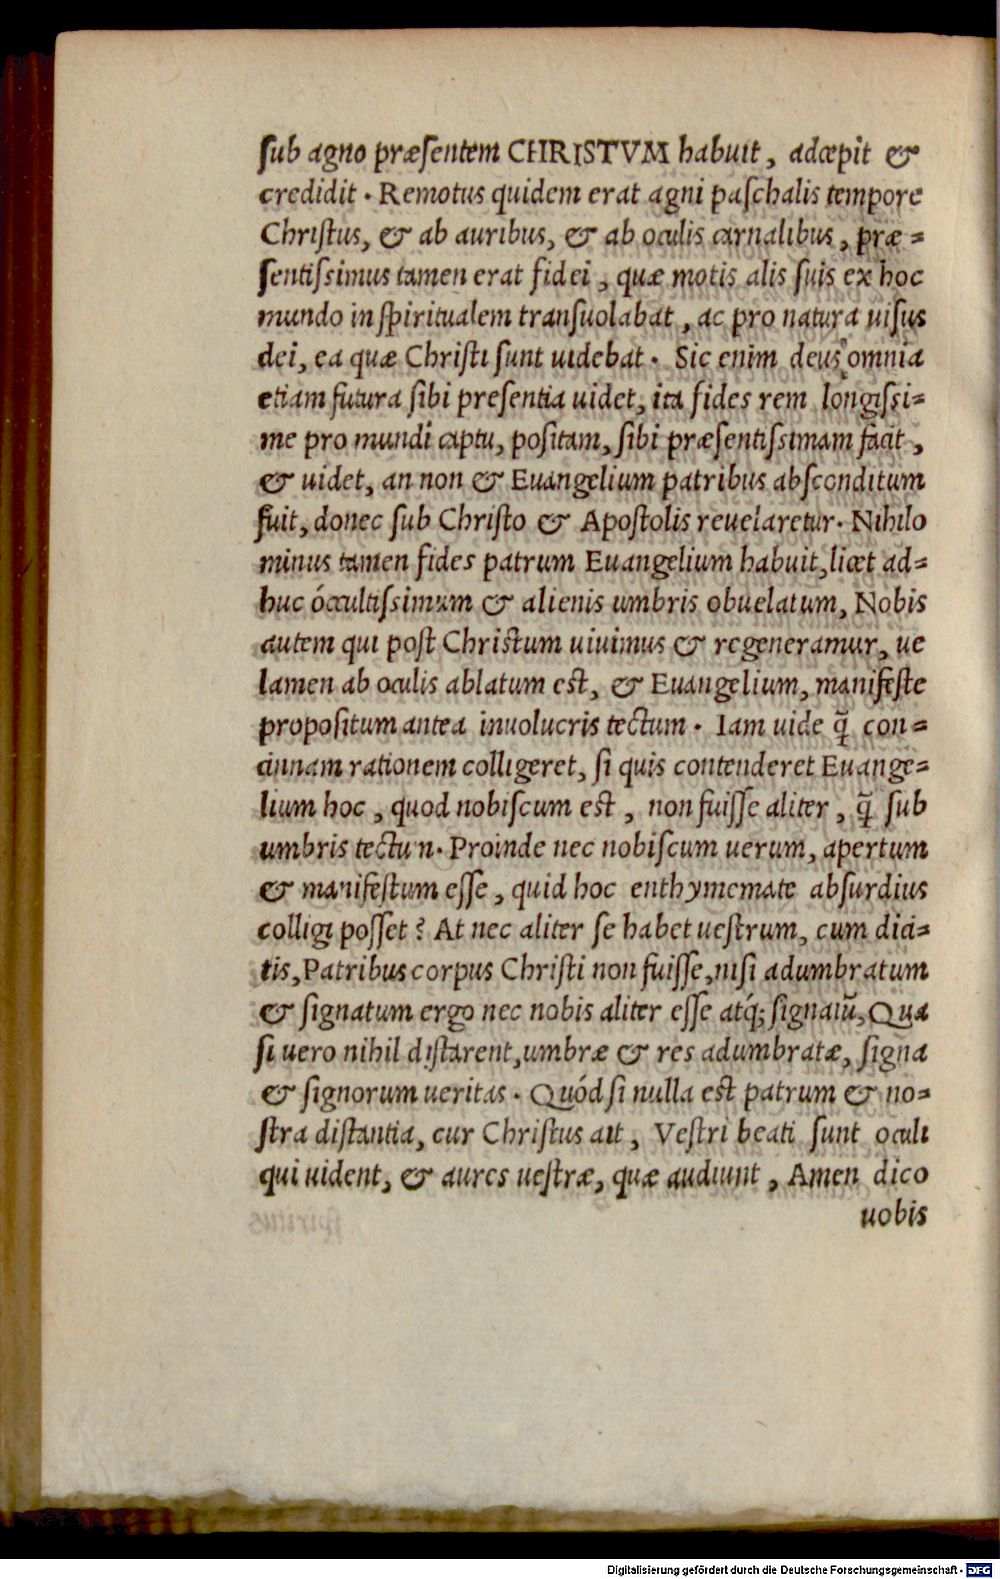 ſub agno præſentem CHRISTVM habuit, adcepit &
credidit · Remotus quidem erat agni paſchalis tempore
Chriſtus, & ab auribus, & ab oculis carnalibus, præ=
ſentiſsimus tamen erat fidei, quæ motis alis ſuis ex hoc
mundo in ſpiritualem tranſuolabat, ac pro natura uiſus
dei, ea quæ Chriſti ſunt uidebat · Sic enim deus omnia
etiam futura ſibi preſentia uidet, ita fides rem longiſsi=
me pro mundi captu, poſitam, ſibi præſentiſsimam facit,
& uidet, an non & Euangelium patribus abſconditum
fuit, donec ſub Chriſto & Apoſtolis reuelaretur· Nihilo
minus tamen fides patrum Euangelium habuit, licet ad=
huc óccultiſsimum & alienis umbris obuelatum, Nobis
autem qui poſt Chriſtum uiuimus & regeneramur, ue
lamen ab oculis ablatum eſt, & Euangelium, manifeſte
propoſitum antea inuolucris tectum · Iam uide q̃ con=
cinnam rationem colligeret, ſi quis contenderet Euange=
lium hoc, quod nobiſcum eſt, non fuiſſe aliter, q̃ ſub
umbris tectum· Proinde nec nobiſcum uerum, apertum
& manifeſtum eſſe, quid hoc enthymemate abſurdius
colligi poſſet? At nec aliter ſe habet ueſtrum, cum dici=
tis, Patribus corpus Chriſti non fuiſſe, niſi adumbratum
& ſignatum ergo nec nobis aliter eſſe atq́; ſignatũ, Qua
ſi uero nihil diſtarent, umbræ & res adumbratæ, ſigna
& ſignorum ueritas · Quód ſi nulla eſt patrum & no=
ſtra diſtantia, cur Chriſtus ait, Veſtri beati ſunt oculi
qui uident, & aures ueſtræ, quæ audiunt, Amen dico
uobis
Digitalisierung gefördert durch die Deutsche Forschungsgemeinschaft - DFG